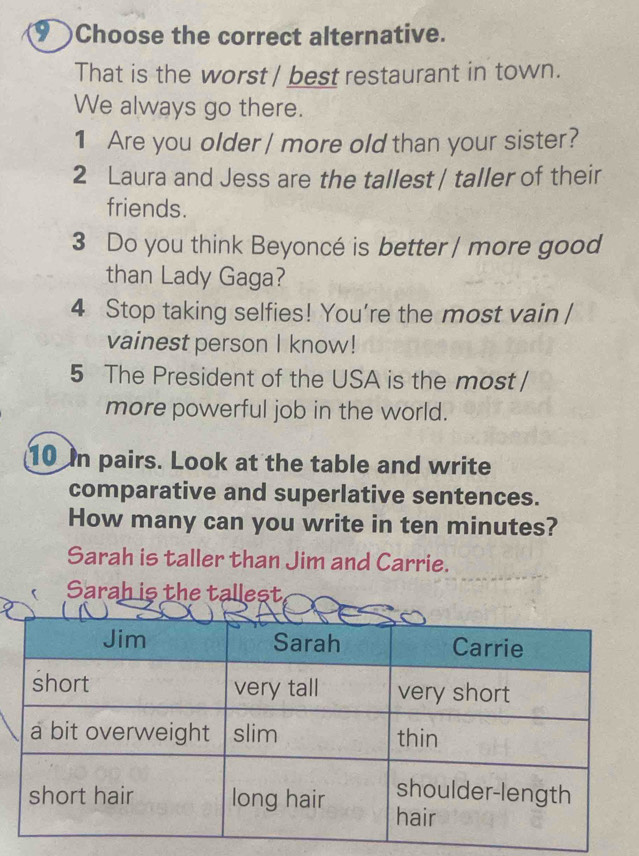 9 Choose the correct alternative.
That is the worst / best restaurant in town.
We always go there.
1 Are you older / more old than your sister?
2 Laura and Jess are the tallest / taller of their
friends.
3 Do you think Beyoncé is better / more good
than Lady Gaga?
4 Stop taking selfies! You're the most vain /
vainest person I know!
5 The President of the USA is the most /
more powerful job in the world.
10 In pairs. Look at the table and write
comparative and superlative sentences.
How many can you write in ten minutes?
Sarah is taller than Jim and Carrie.
Sarah is the tallest
IN SOVRAPPESO
Jim Sarah Carrie
short very tall very short
a bit overweight slim thin
short hair long hair shoulder-length
hair